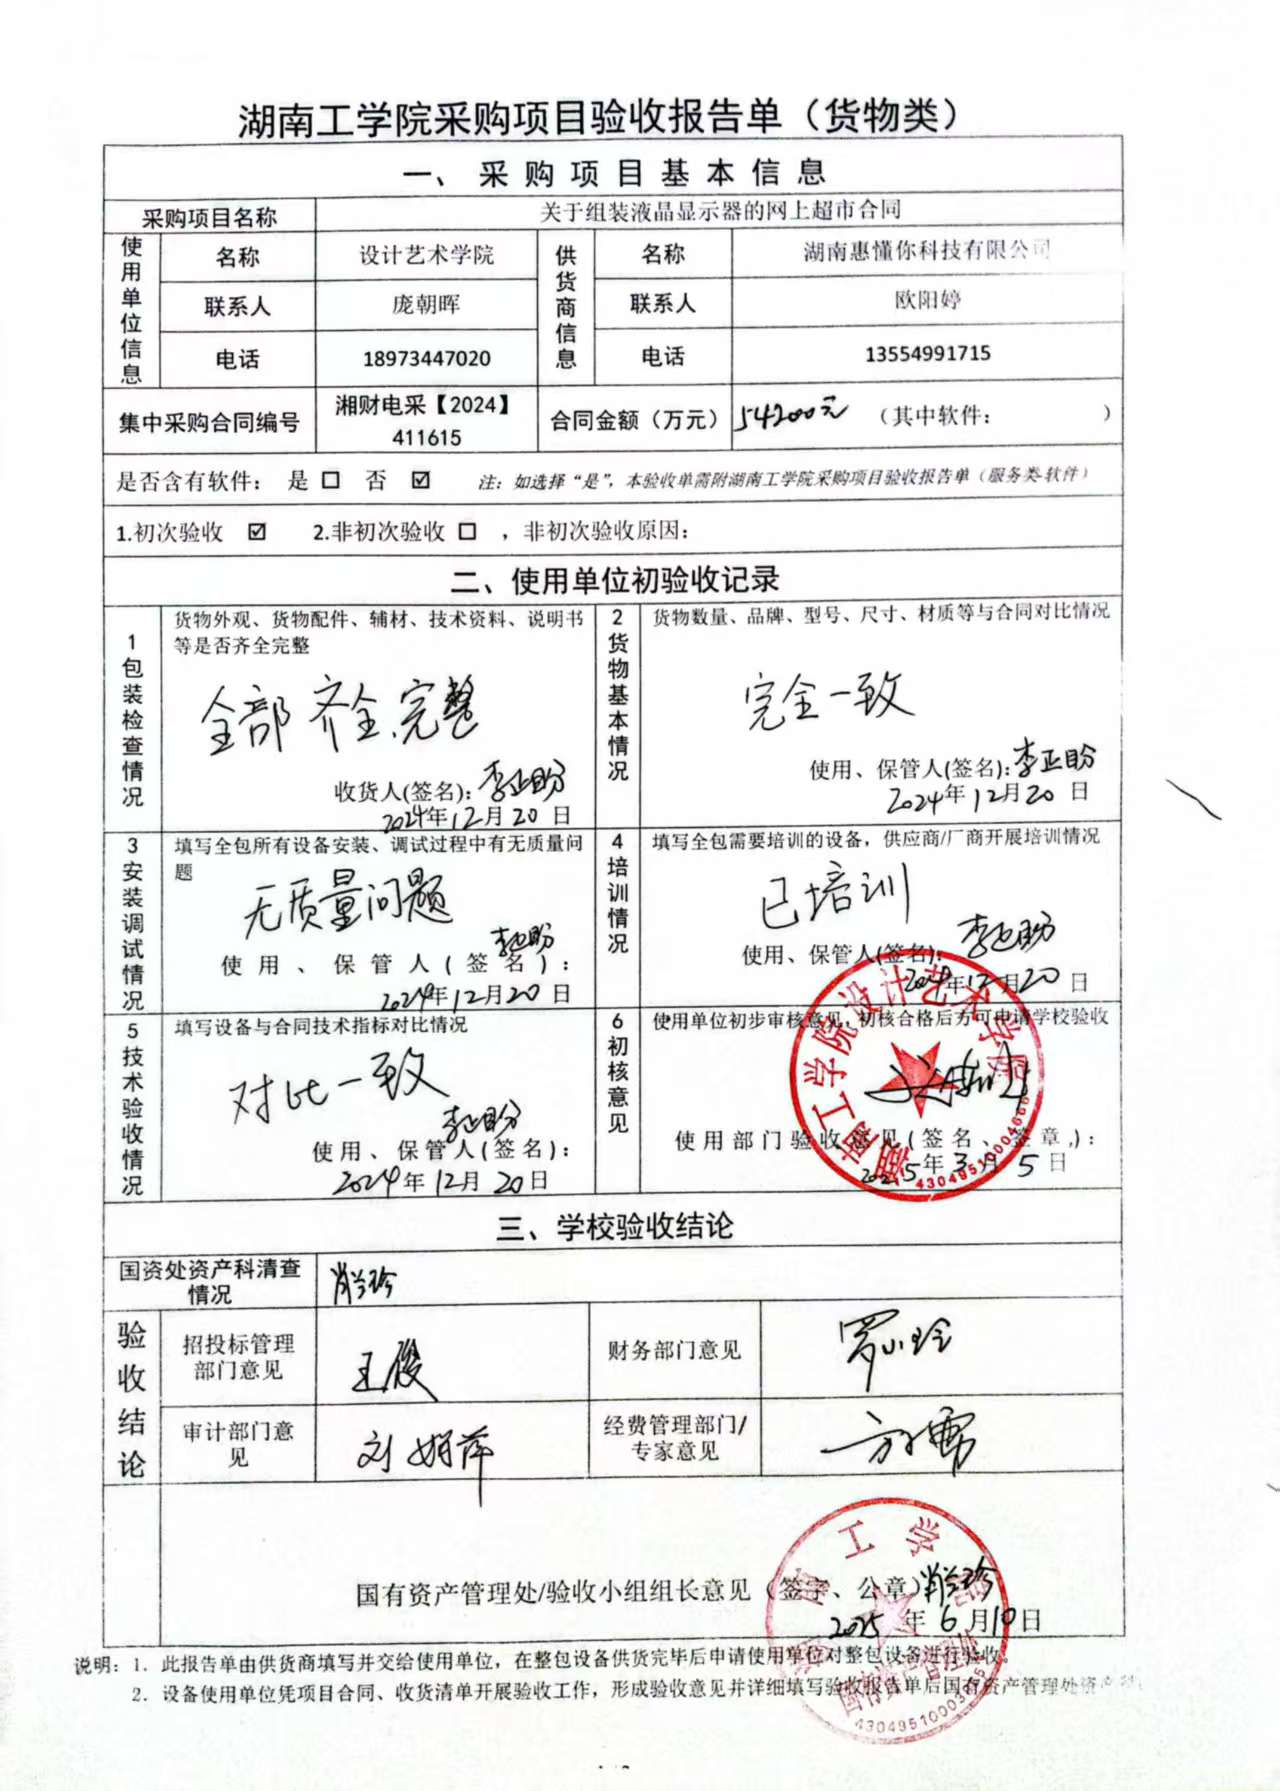 湖南工学院采购项目验收报告单（货物类）
一、采购项目基本信息
采购项目名称 关于组装液晶显示器的网上超市合同
使用单位信息 名称 设计艺术学院 供货商信息 名称 湖南惠懂你科技有限公司
联系人 庞朝晖 联系人 欧阳婷
电话 18973447020 电话 13554991715
集中采购合同编号 湘财电采【2024】 合同金额（万元） 54200元 （其中软件： ）
411615
是否含有软件： 是 ☐ 否 ☑ 注：如选择“是”，本验收单需附湖南工学院采购项目验收报告单（服务类-软件）
1.初次验收 ☑ 2.非初次验收 ☐ ，非初次验收原因：
二、使用单位初验收记录
1包装检查情况
货物外观、货物配件、辅材、技术资料、说明书
等是否齐全完整
全部齐全、完整
收货人(签名)：李正盼
2024年12月20日
2货物基本情况
货物数量、品牌、型号、尺寸、材质等与合同对比情况
完全一致
使用、保管人(签名)：李正盼
2024年12月20日
3安装调试情况
填写全包所有设备安装、调试过程中有无质量问
题
无质量问题
李正盼
使用、保管人(签名)：
2024年12月20日
4培训情况
填写全包需要培训的设备，供应商/厂商开展培训情况
已培训
使用、保管人(签名)：李正盼
2024年12月20日
5技术验收情况
填写设备与合同技术指标对比情况
对比一致
李正盼
使用、保管人(签名)：
2024年12月20日
6初核意见
使用单位初步审核意见，初核合格后方可申请学校验收
使用部门验收意见(签名、签章,)：
2025年3月5日
湖南工学院设计艺术学院
三、学校验收结论
国资处资产科清查
情况
肖兰珍
验收结论
招投标管理
部门意见
王俊
财务部门意见
罗小玲
审计部门意见
刘娟萍
经费管理部门/
专家意见
国有资产管理处/验收小组组长意见（签字、公章）肖兰珍
2025年6月10日
湖南工学院
国有资产管理处
说明：1．此报告单由供货商填写并交给使用单位，在整包设备供货完毕后申请使用单位对整包设备进行验收。
2．设备使用单位凭项目合同、收货清单开展验收工作，形成验收意见并详细填写验收报告单后国有资产管理处资产科